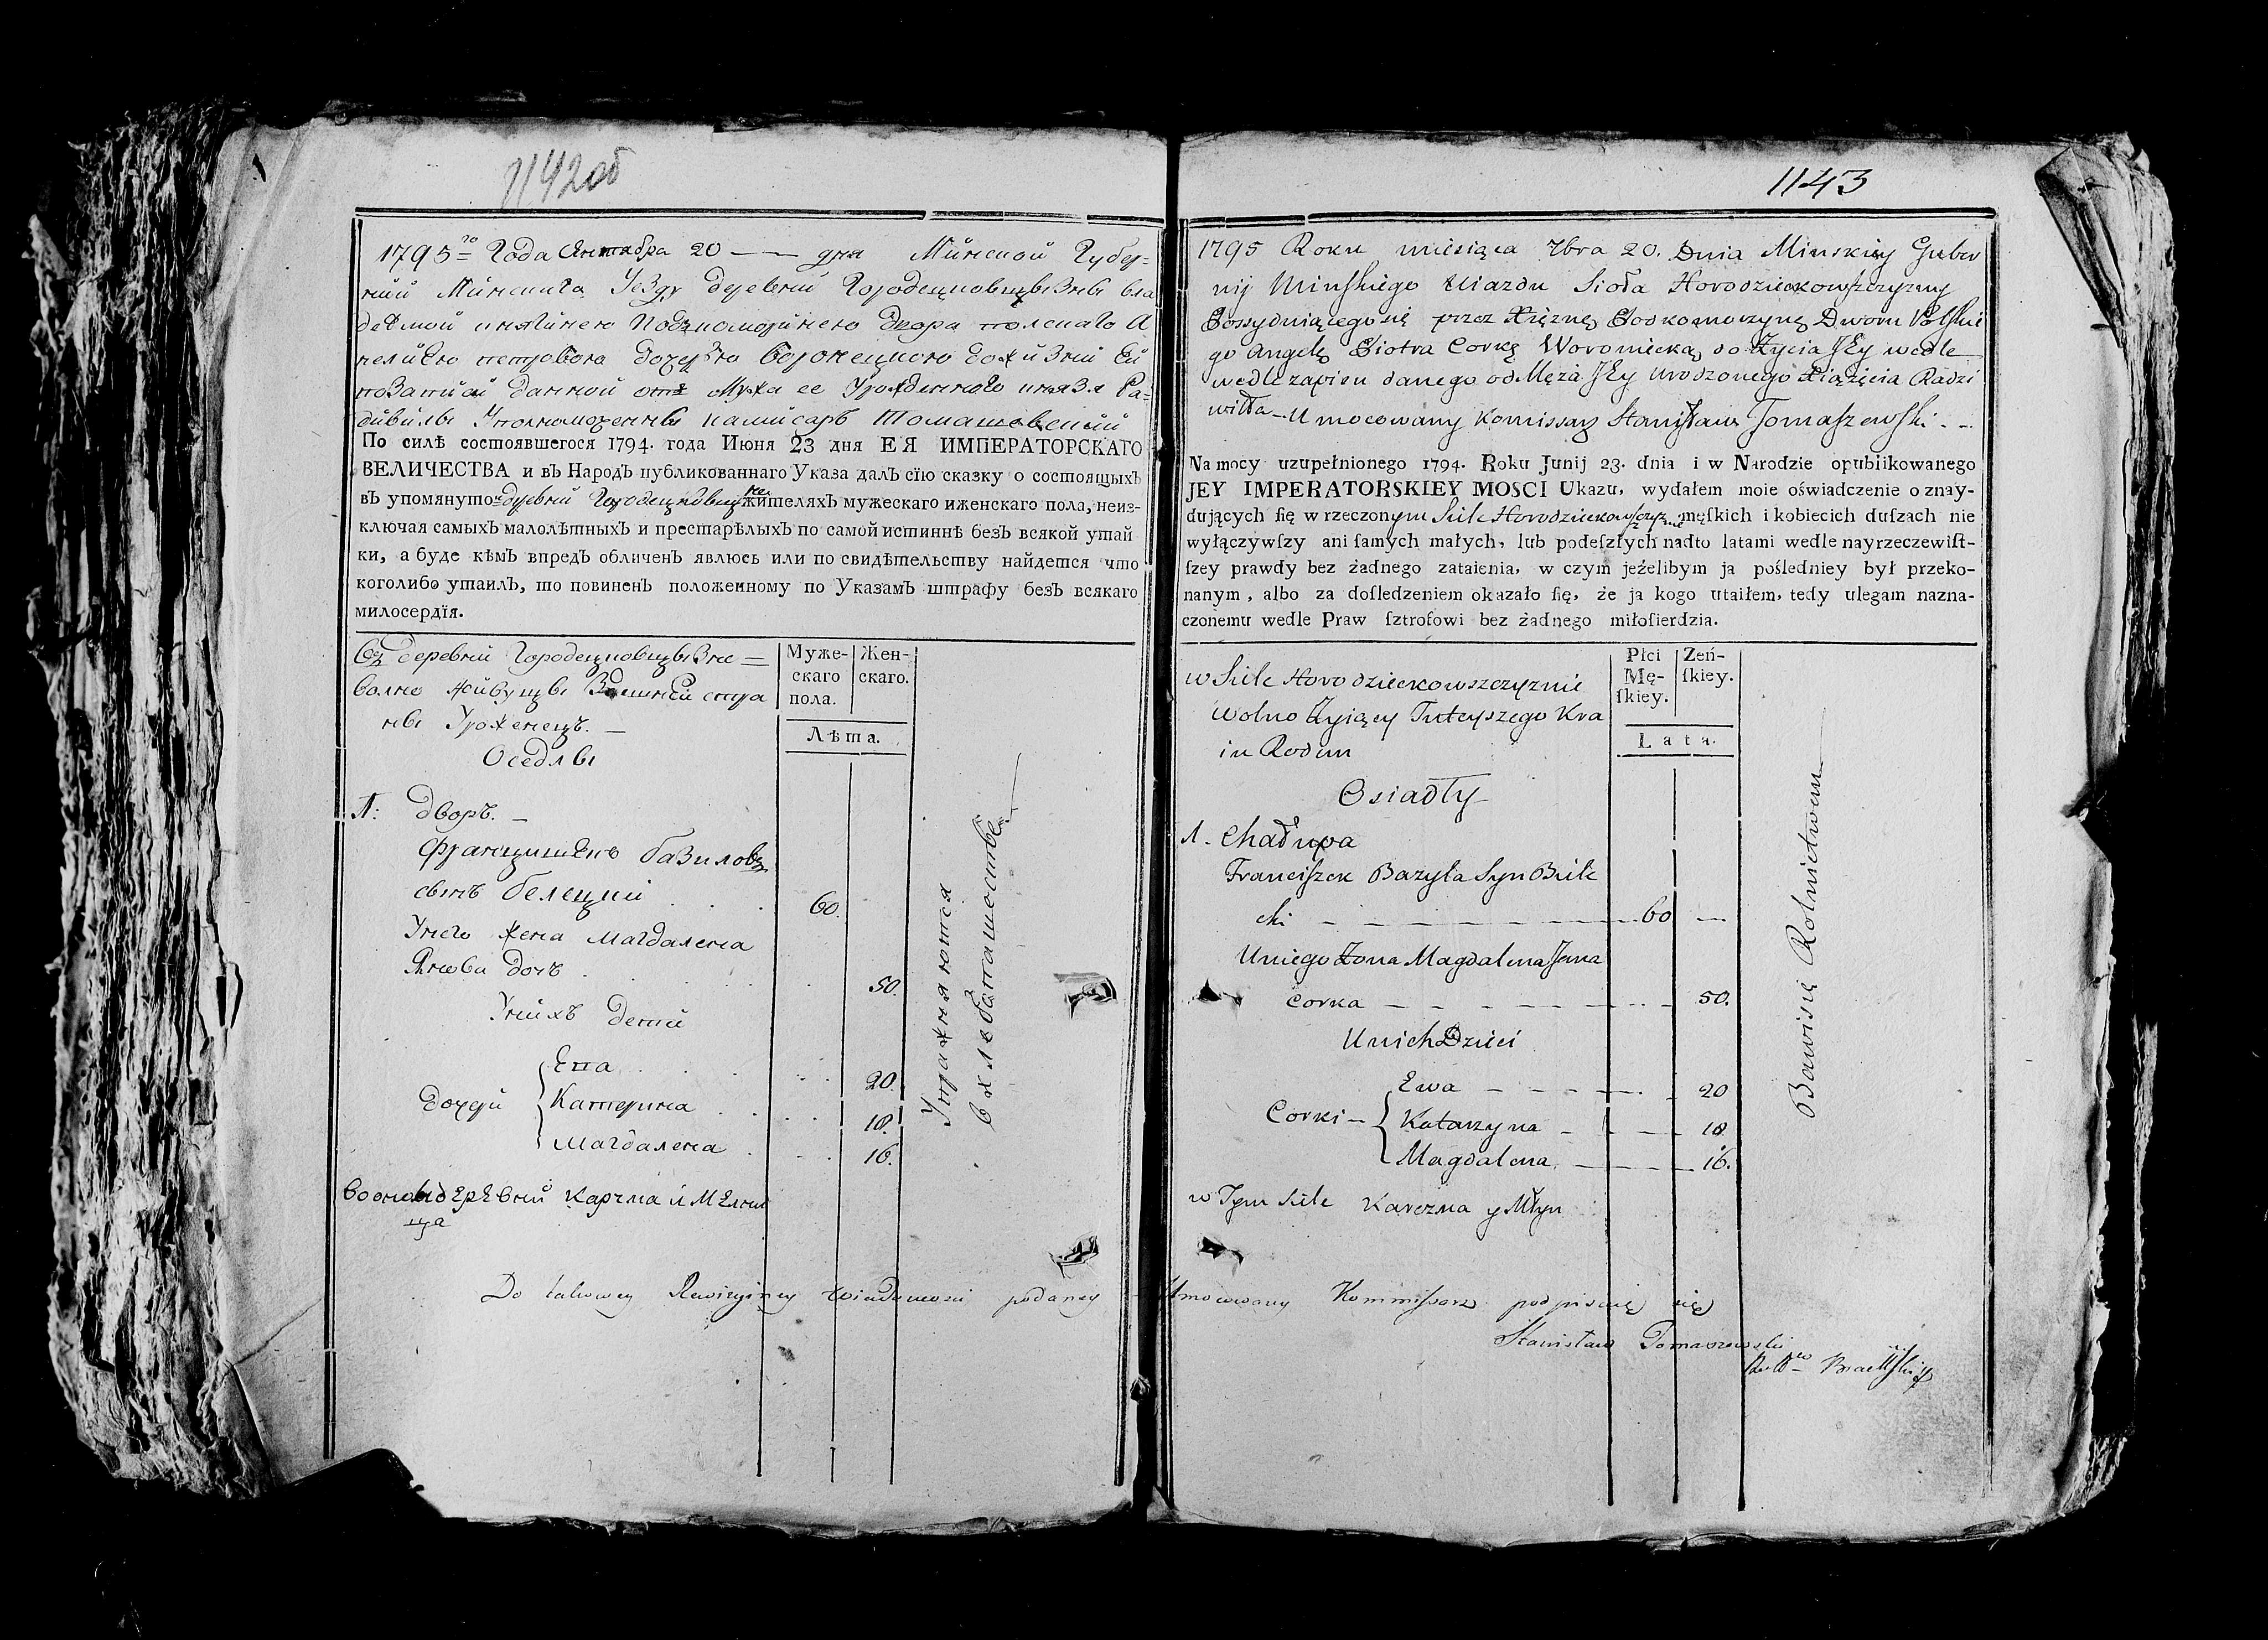 1142об
1795го Года Сентября 20 — — дня Минской Губер=
нии Минскига Уезду деревни Городецковщызны вла
даемой княгинею Подкоморинею двора полскаго А
нелиею петровою дочерзю Воронецкою до жизни Ей
позаписи данной отъ Мужа ее Урожденного князя Ра=
дивилы Уполномоченны камисаръ Томашевский
По силѣ состоявшегося 1794. года Июня 23 дня ЕЯ ИМПЕРАТОРСКАГО
ВЕЛИЧЕСТВА и въ Народъ публикованнаго Указа далъ сїю сказку о состоящыхъ
въ упомянутой деревни Городецковщызне жителяхъ мужескаго иженскаго пола, неиз-
ключая самыхъ малолѣтныхъ и престарѣлыхъ по самой истиннѣ безъ всякой утай
ки, а буде кѣмъ впредъ обличенъ явлюсь или по свидѣтельству найдется что
коголибо утаилъ, то повиненъ положенному по Указамъ штрафу безъ всякаго
милосердїя.
Въ деревни Городецковщызне =
волно живущы Здешней стра
ны Уроженецъ. —
Оседлы
Муже-
скаго
пола.
Жен-
скаго.
Лѣта.
1: Дворъ. —
Францишекъ базиловъ
сынъ белецкий . . . 60.
Унего жена Магдалена
Янова дочь . . . . 50.
Унихъ дети
Ева . . . . 20.
дочери Катерина . . . . 18.
Магдалена . . . 16.
Во оной дЕрЕвни карчма и мЕлни
ца
Упражняются
в хлебопашестве
1143
1795 Roku miesiąca 7bra 20. Dnia Minskiey Guber
nij Minskiego Uiazdu Sioła Horodzieckowszczyzny
Possyduiącego się przez Xiężnę Podkomorzynę Dworu Polskie
go Angelę Piotra Corkę Woroniecką do Życia JEy wedle
wedle zapisu danego od Męża JEy Urodzonego Xiążęcia Radzi
wiłła — Umocowany Komissarz Stanisław Tomaszewski . —
Na mocy uzupełnionego 1794. Roku Junij 23. dnia i w Narodzie opublikowanego
JEY IMPERATORSKIEY MOSCI Ukazu, wydałem moie oświadczenie o znay-
dujących ſię w rzeczonym Siele Horodzieckowszczyznie męſkich i kobiecich duſzach nie
wyłączywſzy ani ſamych małych, lub podeſzłych nadto latami wedle nayrzeczewiſt-
ſzey prawdy bez żadnego zataienia, w czym jeżelibym ja poślednieу był przeko-
nanym, albo za doſledzeniem okazało ſię, że ja kogo utaiłem, tedy ulegam nazna-
czonemu wedle Praw ſztrofowi bez żadnego miłoſierdzia.
w Siele Horodzieckowszczyznie
wolno Zyiący Tuteyszego Kra
iu Rodem
Osiadły
Płci
Mę-
ſkiey.
Zeń-
ſkiey.
Lata.
1. Chałupa
Franciszek Bazyla Syn Biele
cki — — — — — 60 —
Uniego Żona Magdalena Jana
Corka — — — — — 50.
Unich Dzieci
Ewa — — — — 20
Corki — Katarzyna — — — 18
Magdalena — — — 16.
w Tym Siele Karczma y Młyn
Bawi się Rolnictwem
Do takowey Rewizyiney wiadomosci podaney Umocowany Kommissarz podpisuię się
Stanisław Tomaszewski